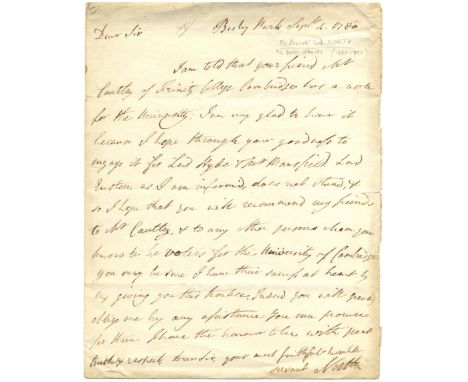 Dear Sir
Bushy Park Sept. 4. 1780
Frederick Lord NORTH
I am told that your friend Mr
Cautley of Trinity College Cambridge has a vote
for the University; I am very glad to hear it
because I hope through your goodness to
engage it for Lord Hyde & Mr Mansfield Lord
Euston as I am informed, does not stand, &
so I hope that you will recommend my friends
to Mr Cautley, & to any other persons whom you
know to be voters for the University of Cambridge
you may be sure I have their success at heart by
my giving you this trouble. Indeed you will greatly
oblige me by any assistance you can procure
for them I have the honour to be with great
truth & respect, dear Sir, your most faithful humble
servant North